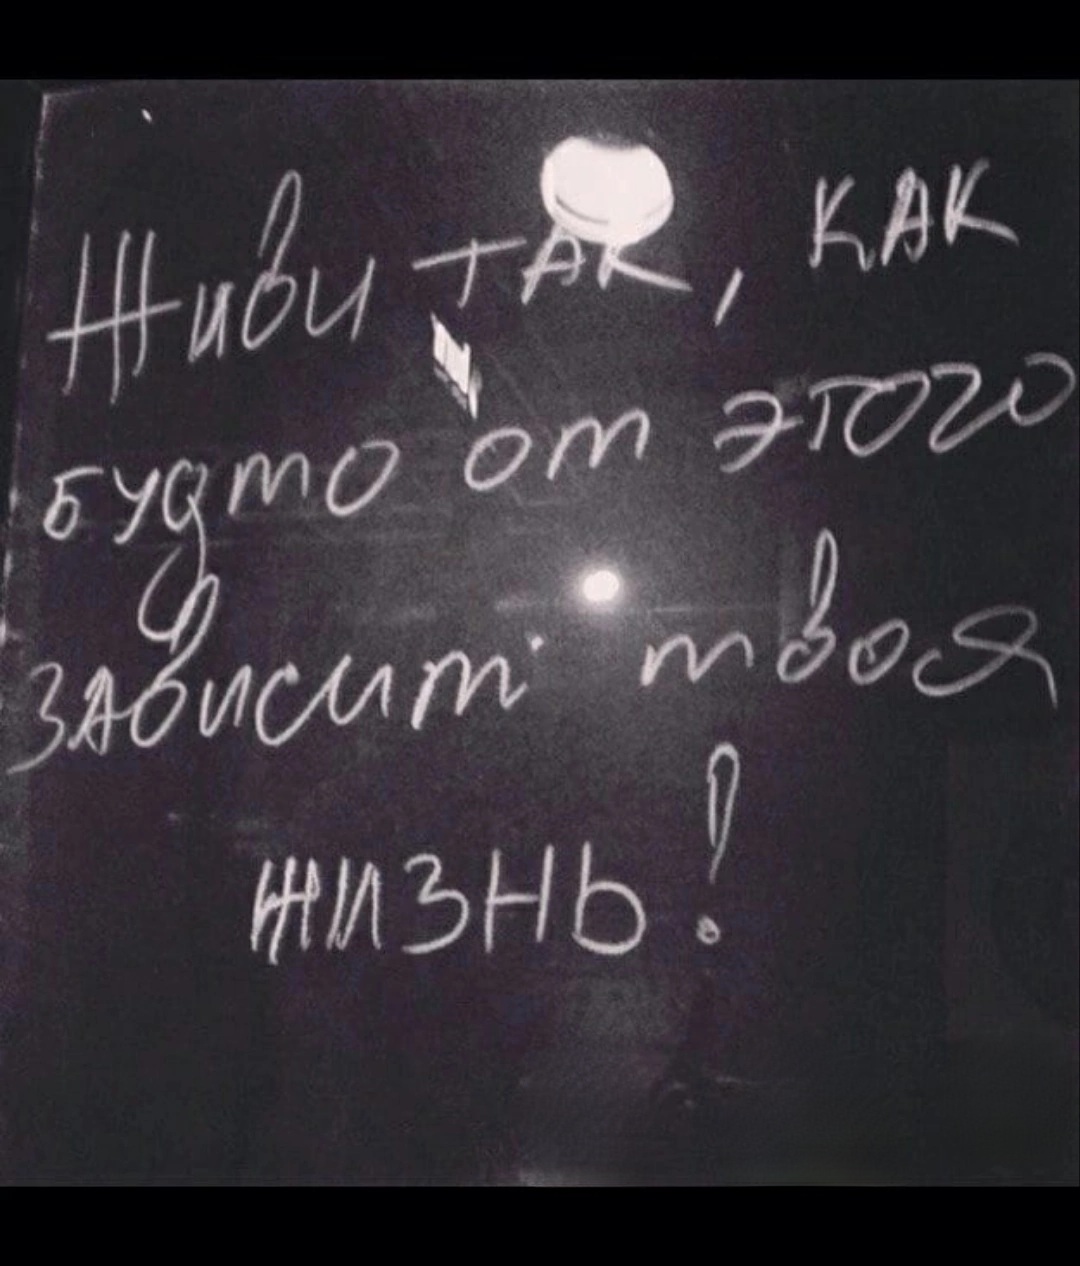 Живи так, как
будто от этого
зависит твоя
жизнь!